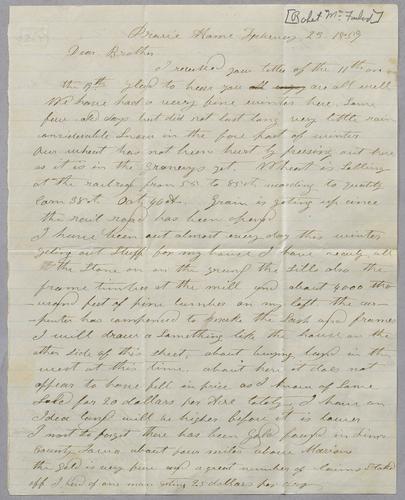 [Robert Mc Farland]
Prairie Home February 23. 1859
Dear Brother
I received your letter of the 11th on
the 19th glad to hear you are all well
We have had a very fine winter here. Some
few cold days but did not last long very little rain
considerable Snow in the fore part of winter
Our wheat has not been hurt by freezing out here
as it is in the Granerys yet. Wheat is Selling
at the railroad from 55 to 85cts according to quality
Corn 38cts Oats 40cts. Grain is going up since
the rail road has been opened
I have been out almost every day this winter
geting out Stuff for my house I have nearly all
the Stone on the ground the Sills also the
frame timber at the mill and about 9000 tho
usand feet of pine lumber on my loft the car
penter has commenced to make the Sash and frames
I will draw a Something like the house on the
other Side of this Sheet. about buying land in the
west at this time. about here it does not
appear to have fell in price as I know of Some
Sold for 20 dollars per Acre lately. I have an
Idea land will be higher before it is lower
I most to forget there has been Gold found in Linn
County Iowa about four miles above Marion
the Gold is very fine and a great number of claims Staked
off I herd of one man geting 25 dollars per day